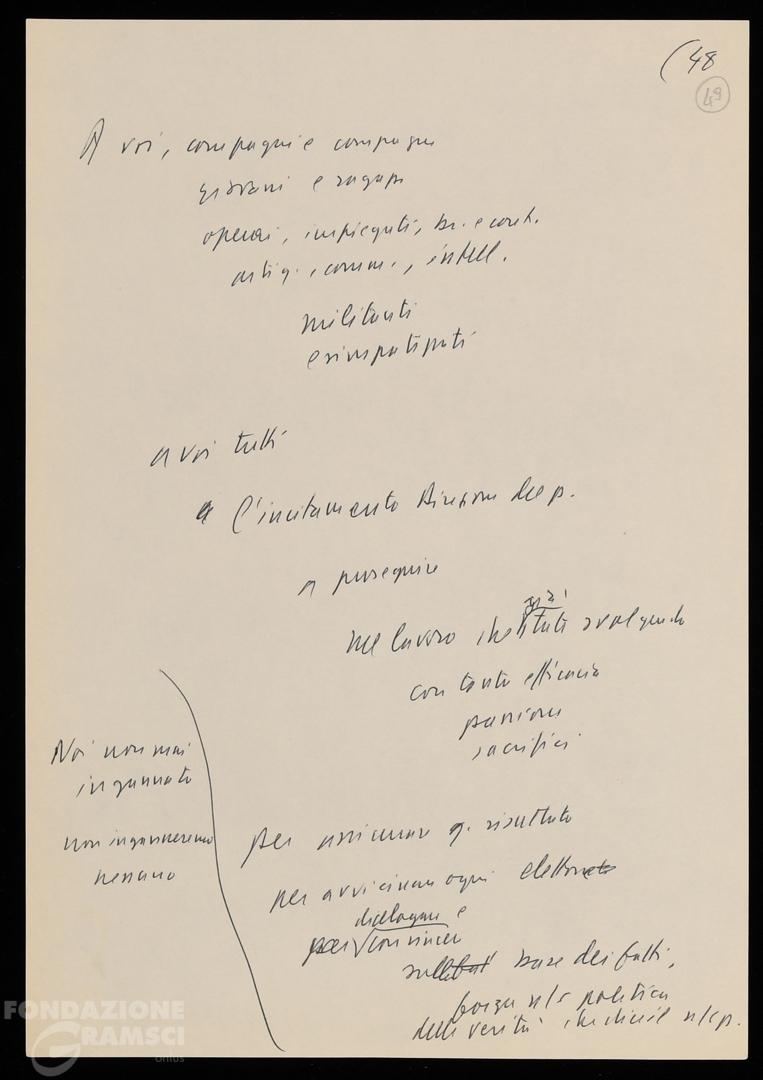 (48
49
A voi, compagni e compagne
giovani e ragazzi
operai, impiegati, br. e cont.
artig., comm., intell.
militanti
e simpatizzanti
a voi tutti
l'incitamento Direzione del p.
a proseguire
nel lavoro che già state svolgendo
con tanta efficacia
passione
sacrifici
Noi non mai
ingannato
non inganneremo
nessuno
per assicurare q. risultato
per avvicinare ogni elettore
dialogare e
per convincere
sulla base dei fatti,
forza n/s politica
della verità che dice il n/s p.
FONDAZIONE
GRAMSCI
onlus